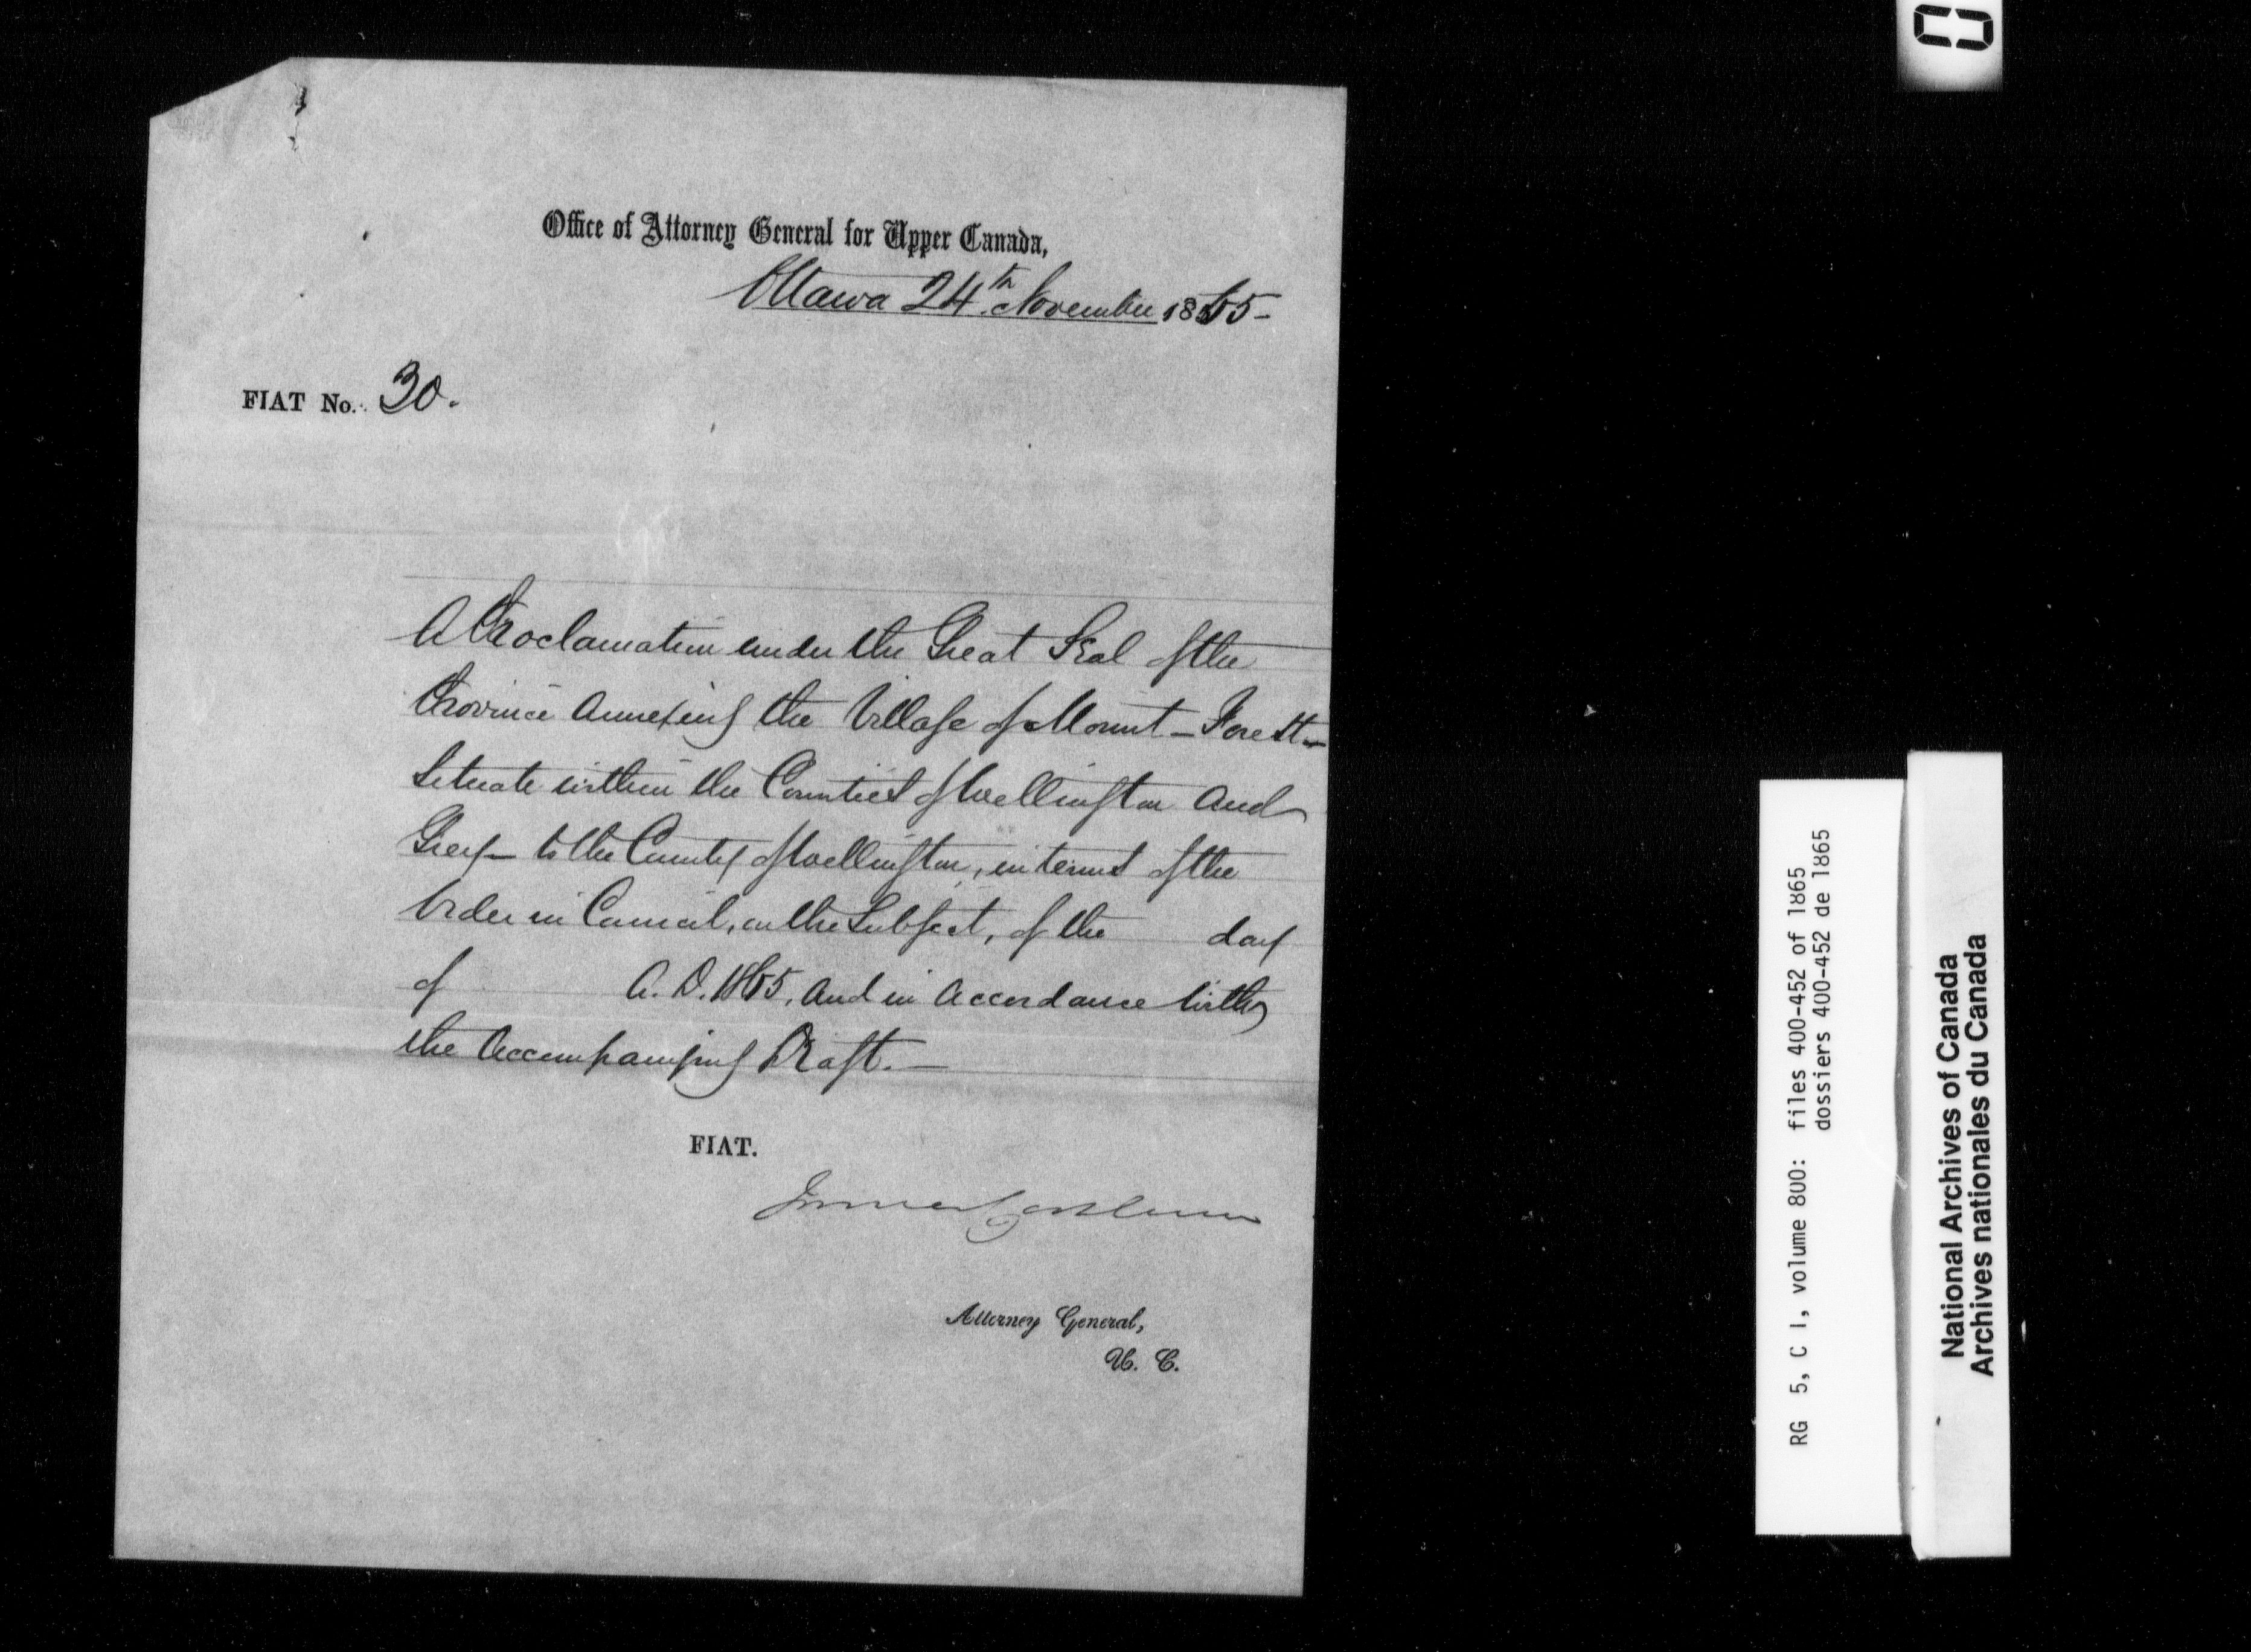 Office of Attorney General for Upper Canada,
Ottawa 24th November 1865-
FIAT No. 30.
A Proclamation under the Great Seal of the
Province Annexing the Village of Mount-Forest-
Situate within the Counties of Wellington and
Grey- to the County of Wellington, in terms of the
Order in Council, on the Subject, of the day
of A.D. 1865, and in accordance with
the Accompanying Draft.-
FIAT.
Attorney General,
U. C.
RG 5, C 1, volume 800: files 400-452 of 1865
dossiers 400-452 de 1865
National Archives of Canada
Archives nationales du Canada